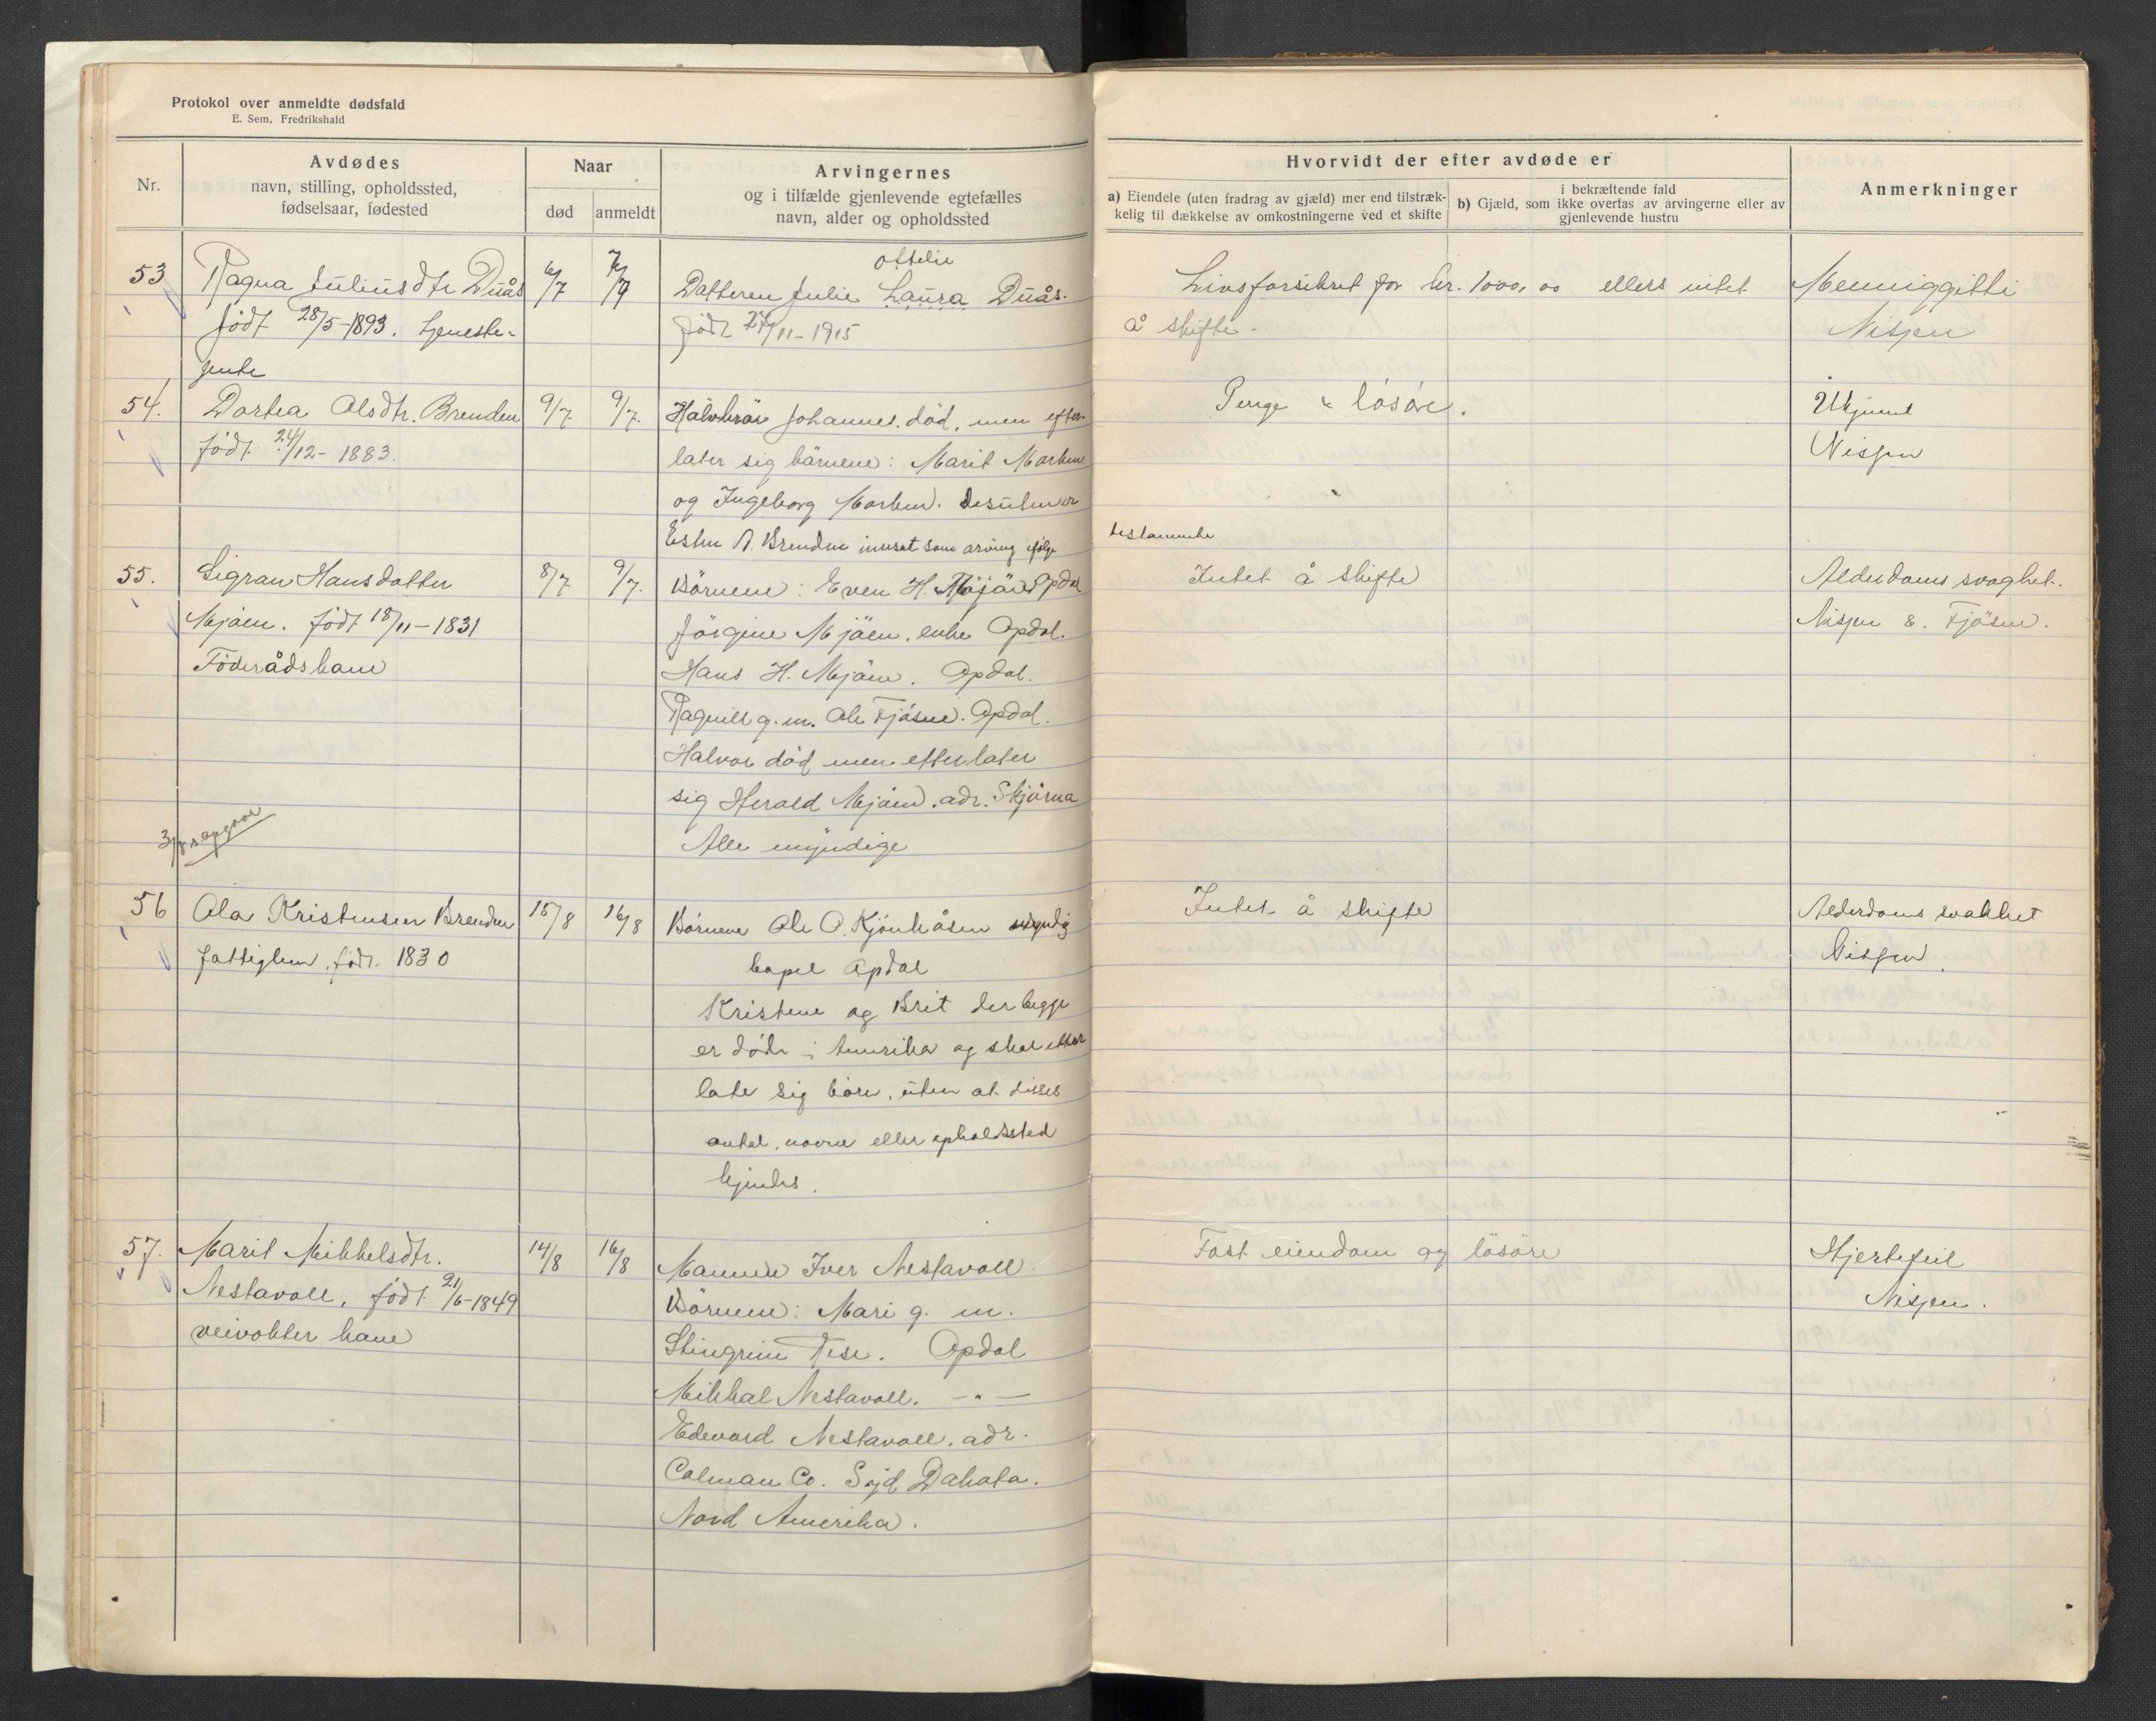 Protokol over anmeldte dødsfald
E. Sem, Fredrikshald
Nr.
Avdødes
navn, stilling, opholdssted,
fødselsaar, fødested
Naar
død
anmeldt
Arvingernes
og i tilfælde gjenlevende egtefælles
navn, alder og opholdssted
Hvorvidt der efter avdøde er
a) Eiendele (uten fradrag av gjæld) mer end tilstræk-
kelig til dækkelse av omkostningerne ved et skifte
i bekræftende fald
b) Gjæld, som ikke overtas av arvingerne eller av
gjenlevende hustru
Anmerkninger
53
Ragna Juliusdtr Duås
født 28/5-1893. tjeneste-
jente
6/7
Ottelie
Datteren Julie Laura Duås.
født 27/11-1915
Livsforsikret for kr. 1000,00 ellers intet
å skifte.
Nisjen
54.
Dortea Olsdtr. Brenden
født 24/12-1883.
9/7
9/7.
Halvbrør Johannes. død, men efter-
later sig børnene: Marit Morken
og Ingeborg Morken. Desuten er
Esten A. Brenden innsat som arving ifølge
testamente
Penge & løsøre.
Ukjent
Nisjen
55.
Sigrau Hansdatter
Mjøen. født 18/11-1831
Føderådskone
8/7
9/7.
Børnene: Even H. Mjøen Opdal
Jørgine Mjøen, enke Opdal.
Hans H. Mjøen. Opdal.
Ragnill g.m. Ole Fjøsne. Opdal.
Halvor død men efterlater
sig Herald Mjøen. adr. Skjørna
Alle myndige
Intet å skifte
Alderdoms svaghet.
Nisjen & Fjøsne.
3/8 opgave
56
Ola Kristensen Brenden
fattiglem. født. 1830
15/8
16/8
Børnene Ole O. Kjønhåsen myndig
Opdal
Kristene og Brit der begge
er døde i Amerika og skal etter
late sig børn, uten at disses
antal, navne eller opholdssted
kjendes.
Intet å skifte
Alderdoms svakhet
Nisjen.
57.
Marit Mikkelsdtr.
Nestavoll, født 21/6-1849
veivokter kone
14/8
16/8
Mannen Iver Nestavoll.
Børnene: Mari g. m.
Steingrim Vese. Opdal
Mikkal Nestavoll. -"-
Edevard Nestavoll. adr.
Colman Co. Syd Dakota.
Nord Amerika.
Fast eiendom og løsøre
Hjertefeil
Nisjen.